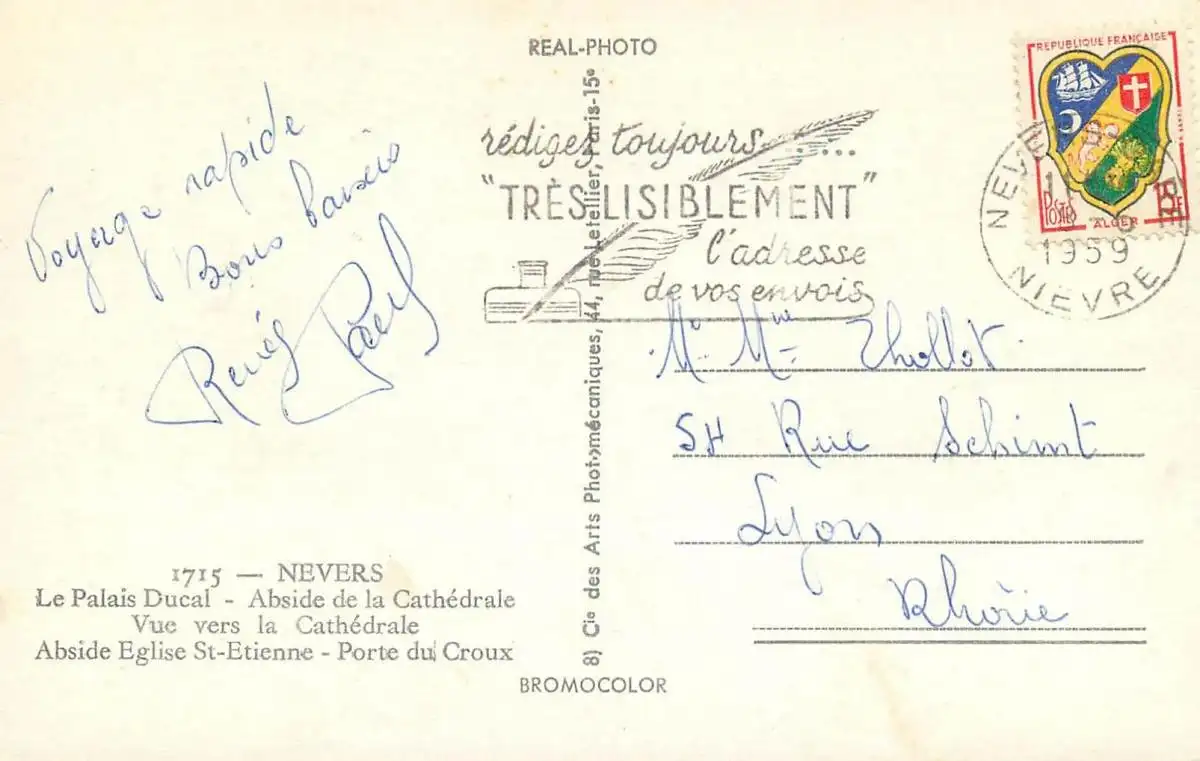 REAL-PHOTO
REPUBLIQUE FRANÇAISE
POSTES
ALGER
NEVERS
1959
NIEVRE
rédigez toujours......
"TRÈS LISIBLEMENT"
l'adresse
de vos envois
Voyage rapide
Bons baisers
René
Mr Mme Thollot
54 Rue
Lyon
Rhône
8) Cie des Arts Photomécaniques, 44, rue Letellier, Paris-15e
1715 — NEVERS
Le Palais Ducal - Abside de la Cathédrale
Vue vers la Cathédrale
Abside Eglise St-Etienne - Porte du Croux
BROMOCOLOR